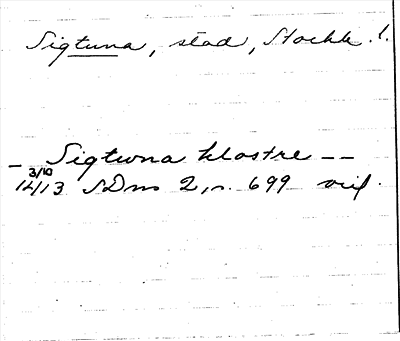 Sigtuna, stad, Stockh. l.
— Sigtwna klostre — —
3/10
1413 SDns 2, n. 699 orig.